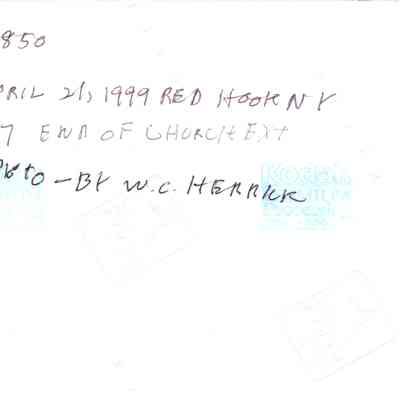 850
PRIL 21, 1999 RED HOOK N Y
7 END OF CHURCH EXT
OTO - BY W.C. HERRICK
KODAK